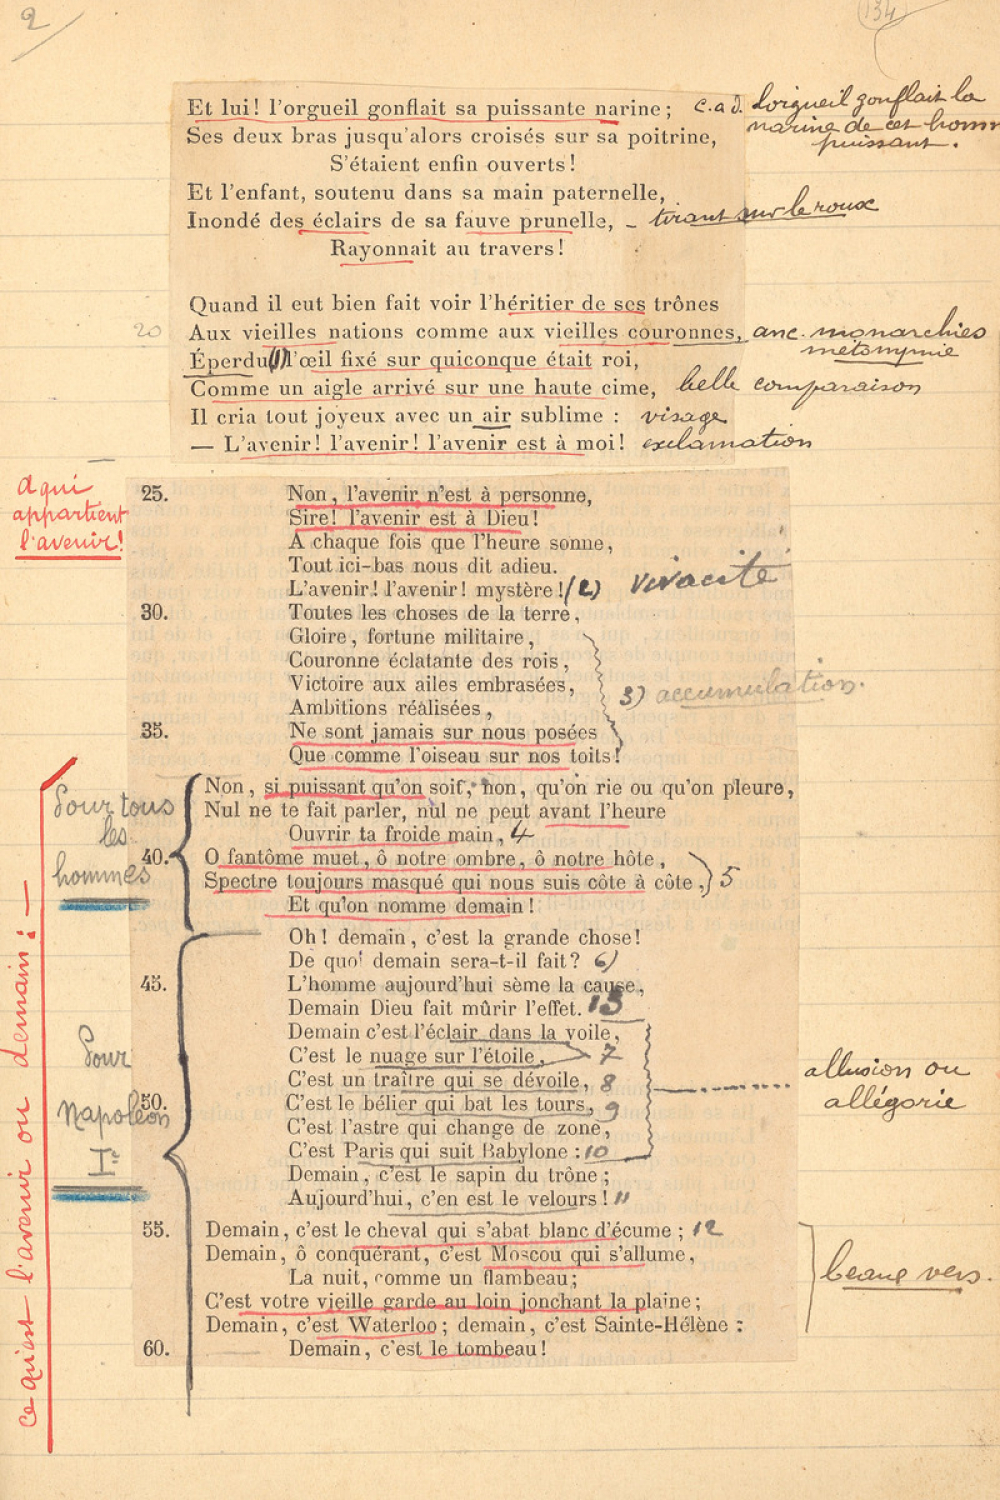 2
134
Et lui! l'orgueil gonflait sa puissante narine; c.a d. l'orgueil gonflait la
narine de cet homm
puissant.
Ses deux bras jusqu'alors croisés sur sa poitrine,
S'étaient enfin ouverts!
Et l'enfant, soutenu dans sa main paternelle,
Inondé des éclairs de sa fauve prunelle, - tirant sur le roux
Rayonnait au travers!
Quand il eut bien fait voir l'héritier de ses trônes
20 Aux vieilles nations comme aux vieilles couronnes, anc. monarchies
métonymie
Éperdu, (1) l'œil fixé sur quiconque était roi,
Comme un aigle arrivé sur une haute cime, belle comparaison
Il cria tout joyeux avec un air sublime : visage
— L'avenir! l'avenir! l'avenir est à moi! exclamation
à qui
appartient
l'avenir!
25. Non, l'avenir n'est à personne,
Sire! l'avenir est à Dieu!
A chaque fois que l'heure sonne,
Tout ici-bas nous dit adieu.
L'avenir! l'avenir! mystère! (2) vivacité
30. Toutes les choses de la terre,
Gloire, fortune militaire,
Couronne éclatante des rois,
Victoire aux ailes embrasées, 3) accumulation.
Ambitions réalisées,
35. Ne sont jamais sur nous posées
Que comme l'oiseau sur nos toits!
Pour tous
les
hommes
Non, si puissant qu'on soit, non, qu'on rie ou qu'on pleure,
Nul ne te fait parler, nul ne peut avant l'heure
Ouvrir ta froide main, 4
40. O fantôme muet, ô notre ombre, ô notre hôte,
Spectre toujours masqué qui nous suis côte à côte, 5
Et qu'on nomme demain!
Oh! demain, c'est la grande chose!
De quoi demain sera-t-il fait? 6)
45. L'homme aujourd'hui sème la cause,
Demain Dieu fait mûrir l'effet. 13
Demain c'est l'éclair dans la voile,
C'est le nuage sur l'étoile, 7
C'est un traître qui se dévoile, 8
50. C'est le bélier qui bat les tours, 9
C'est l'astre qui change de zone,
C'est Paris qui suit Babylone : 10
Demain, c'est le sapin du trône;
Aujourd'hui, c'en est le velours! 11
allusion ou
allégorie
Pour
Napoléon
Ier
55. Demain, c'est le cheval qui s'abat blanc d'écume; 12
Demain, ô conquérant, c'est Moscou qui s'allume,
La nuit, comme un flambeau;
C'est votre vieille garde au loin jonchant la plaine;
Demain, c'est Waterloo; demain, c'est Sainte-Hélène :
60. Demain, c'est le tombeau!
beaux vers.
ce qu'est l'avenir ou demain : —